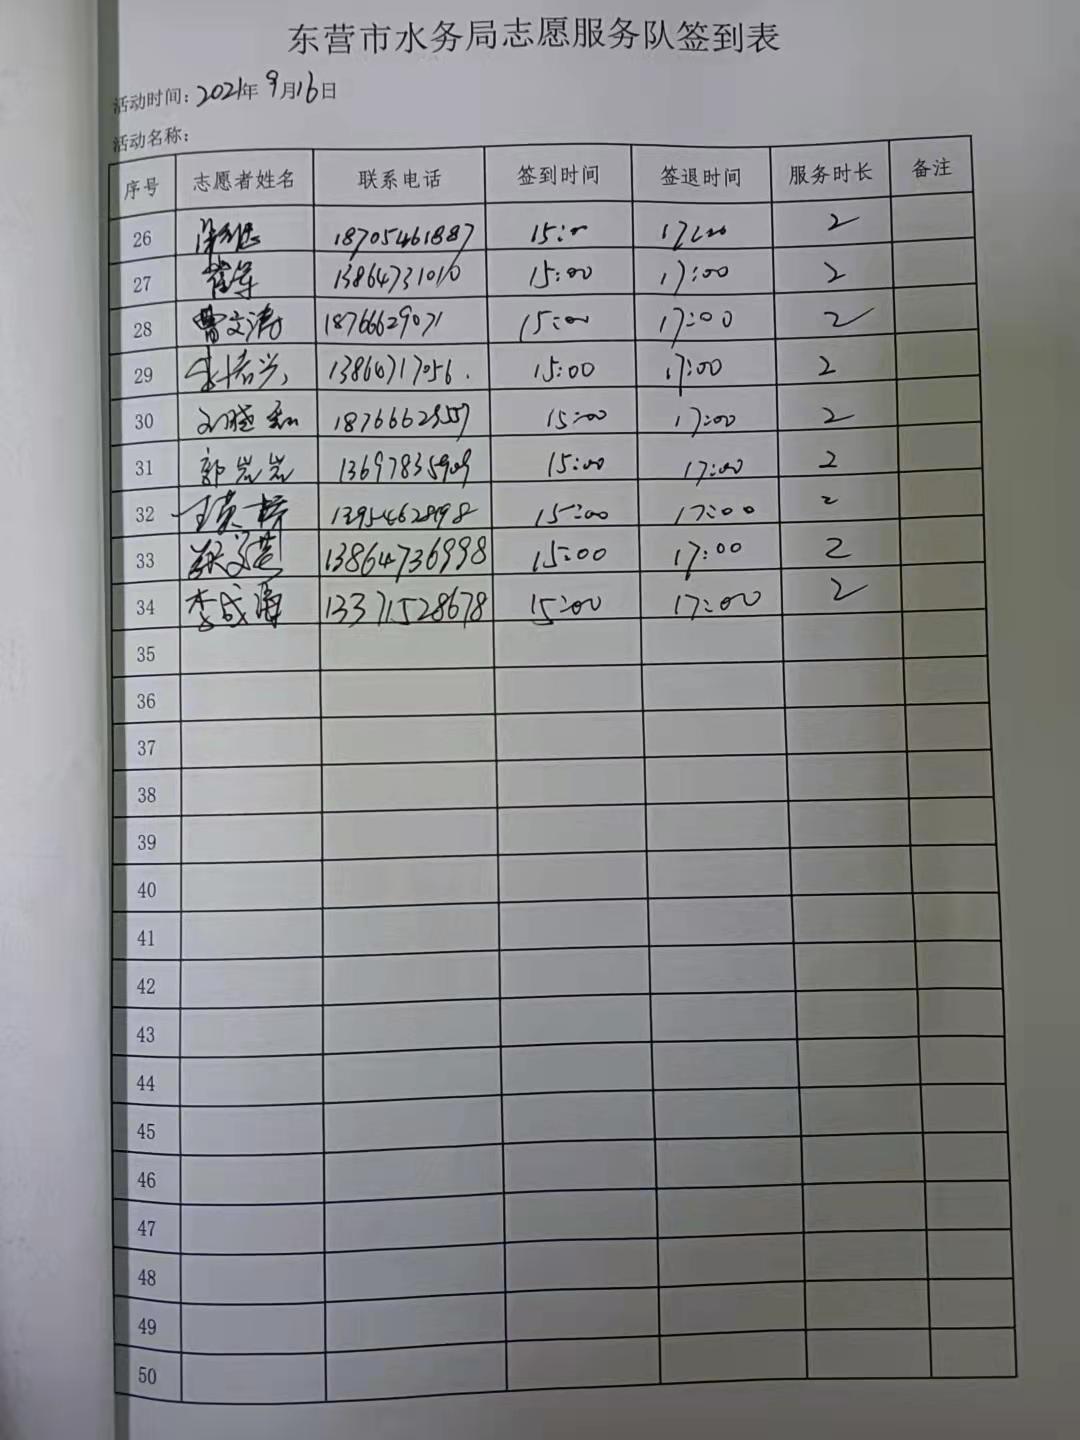 东营市水务局志愿服务队签到表
活动时间：2021年9月16日
活动名称：
序号 志愿者姓名 联系电话 签到时间 签退时间 服务时长 备注
26 18705461887 15:00 17:00 2
27 崔军 13864731010 15:00 17:00 2
28 曹文涛 18766629071 15:00 17:00 2
29 13864717056. 15:00 17:00 2
30 15:00 17:00 2
31 郭岩岩 13697835909 15:00 17:00 2
32 15:00 17:00 2
33 13864736998 15:00 17:00 2
34 李成海 13371528678 15:00 17:00 2
35
36
37
38
39
40
41
42
43
44
45
46
47
48
49
50